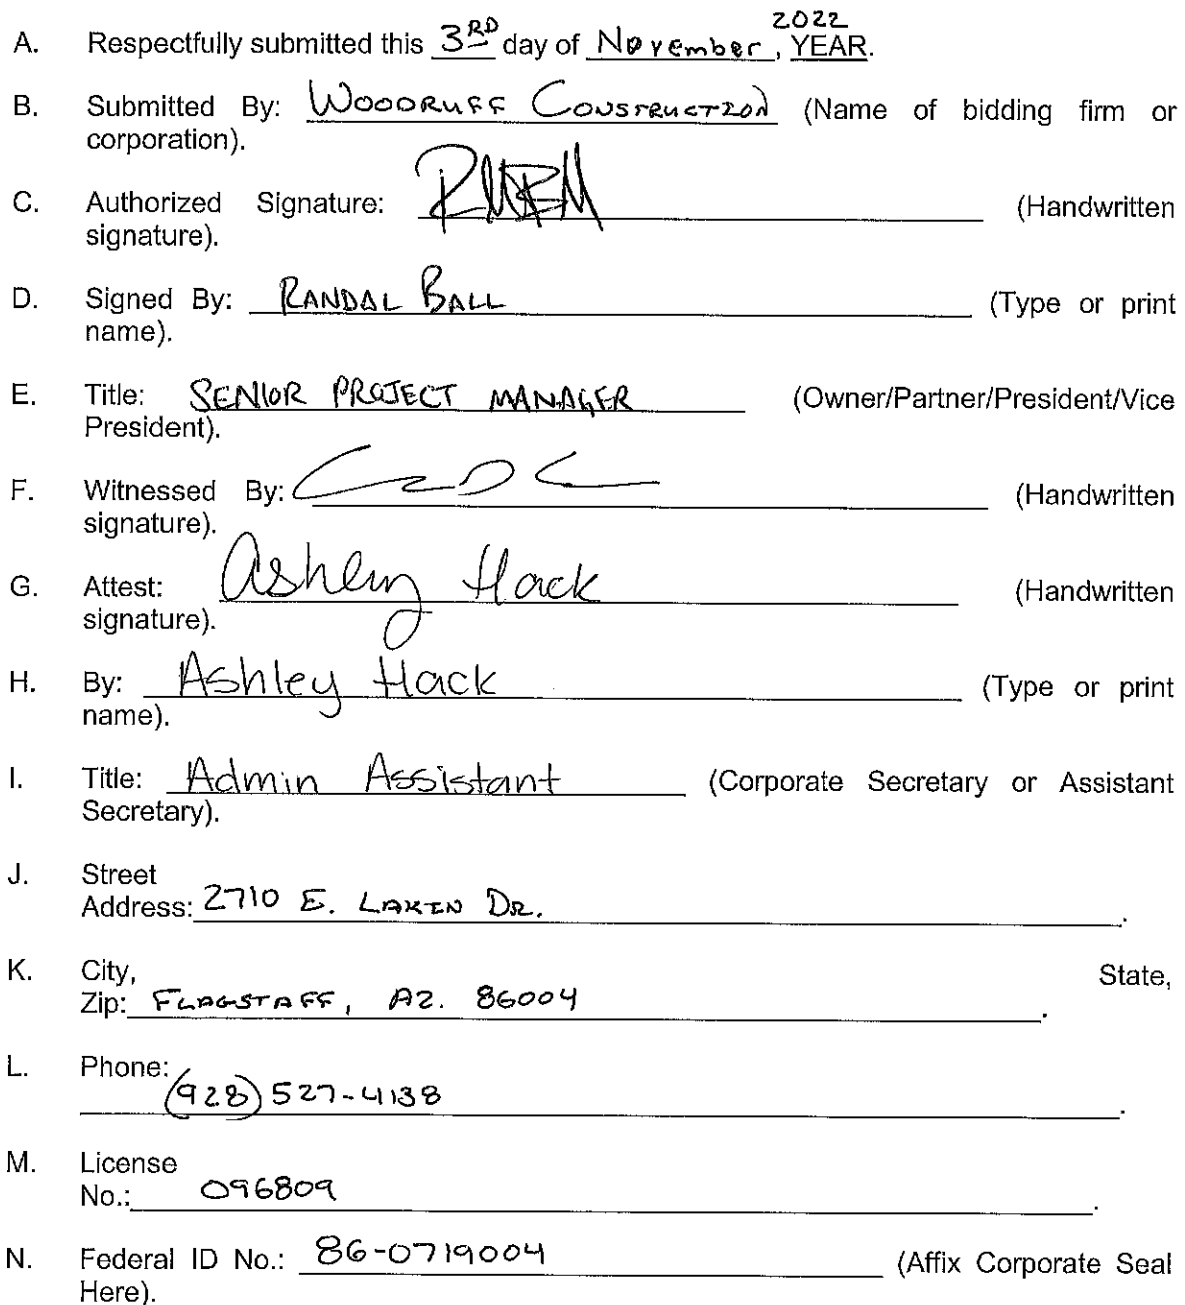 2022
A. Respectfully submitted this 3RD day of November, YEAR.
B. Submitted By: WOODRUFF CONSTRUCTION (Name of bidding firm or
corporation).
C. Authorized Signature: (Handwritten
signature).
D. Signed By: RANDAL BALL (Type or print
name).
E. Title: SENIOR PROJECT MANAGER (Owner/Partner/President/Vice
President).
F. Witnessed By: (Handwritten
signature).
G. Attest: Ashley Hack (Handwritten
signature).
H. By: Ashley Hack (Type or print
name).
I. Title: Admin Assistant (Corporate Secretary or Assistant
Secretary).
J. Street
Address: 2710 E. LAKIN DR.
K. City, State,
Zip: FLAGSTAFF, AZ. 86004.
L. Phone:
(928) 527-4138.
M. License
No.: 096809.
N. Federal ID No.: 86-0719004 (Affix Corporate Seal
Here).